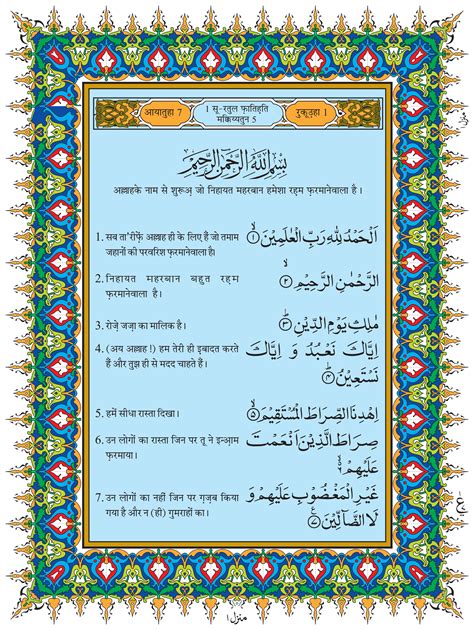 आयातुहा 7
1 सू-रतुल फ़ातिहति
मक्किय्यतुन 5
रुकूउहा 1
بِسْمِ اللّٰهِ الرَّحْمٰنِ الرَّحِيْمِ
अल्लाहके नाम से शुरूअ् जो निहायत महरबान हमेशा रहम फ़रमानेवाला है।
1. सब ता'रीफ़ें अल्लाह ही के लिए हैं जो तमाम
जहानों की परवरिश फ़रमानेवाला है।
اَلْحَمْدُ لِلّٰهِ رَبِّ الْعٰلَمِيْنَ ۙ﴿۱﴾
2. निहायत महरबान बहुत रहम
फ़रमानेवाला है।
الرَّحْمٰنِ الرَّحِيْمِ ۙ﴿۲﴾
3. रोज़े जज़ा का मालिक है।
مٰلِكِ يَوْمِ الدِّيْنِ ؕ﴿۳﴾
4. (अय अल्लाह !) हम तेरी ही इबादत करते
हैं और तुझ ही से मदद चाहते हैं।
اِيَّاكَ نَعْبُدُ وَ اِيَّاكَ
نَسْتَعِيْنُ ؕ﴿۴﴾
5. हमें सीधा रास्ता दिखा।
اِهْدِنَا الصِّرَاطَ الْمُسْتَقِيْمَ ۙ﴿۵﴾
6. उन लोगों का रास्ता जिन पर तू ने इन्आ़म
फ़रमाया।
صِرَاطَ الَّذِيْنَ اَنْعَمْتَ
عَلَيْهِمْ ۙ﴿۶﴾
7. उन लोगों का नहीं जिन पर ग़ज़ब किया
गया है और न (ही) गुमराहों का।
غَيْرِ الْمَغْضُوْبِ عَلَيْهِمْ وَ
لَا الضَّآلِّيْنَ ﴿۷﴾
منزل
ع
منزل ۱